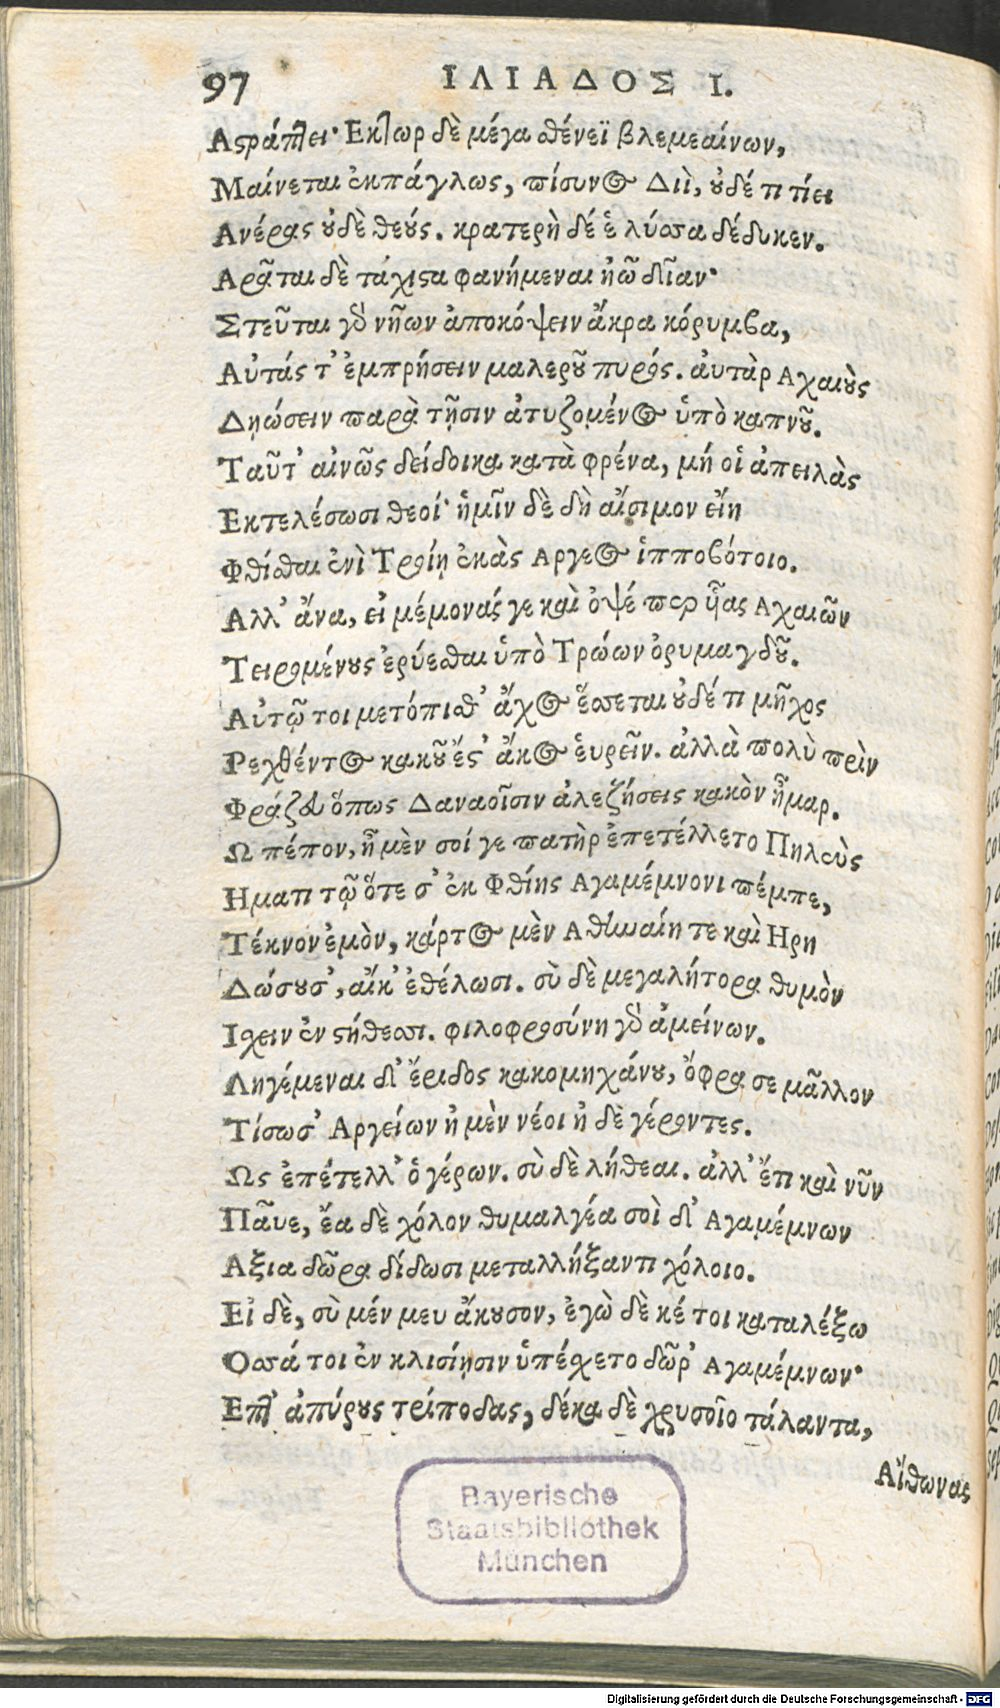 97 ΙΛΙΑΔΟΣ Ι.
Αϛράπτει· Εκτωρ δὲ μέγα σθένεϊ βλεμεαίνων,
Μαίνεται ἐκπάγλως, πίσυνος Διῒ, οὐδέ τι τίει
Ανέρας οὐδὲ θεούς. κρατερὴ δέ ἑ λύσσα δέδυκεν.
Αρᾶται δὲ τάχιϛα φανήμεναι ἠῶ δῖαν·
Στεῦται γὰρ νηῶν ἀποκόψειν ἄκρα κόρυμβα,
Αὐτάς τ' ἐμπρήσειν μαλεροῦ πυρός. αὐτὰρ Αχαιοὺς
Δῃώσειν παρὰ τῇσιν ἀτυζομένος ὑπὸ καπνοῦ.
Ταῦτ' αἰνῶς δείδοικα κατὰ φρένα, μή οἱ ἀπειλὰς
Εκτελέσωσι θεοί· ἡμῖν δὲ δὴ αἴσιμον εἴη
Φθίσθαι ἐνὶ Τροίῃ ἑκὰς Αργεος ἱπποβότοιο.
Αλλ' ἄνα, εἰ μέμονάς γε καὶ ὀψέ περ ἷῆας Αχαιῶν
Τειρομένους ἐρύεσθαι ὑπὸ Τρώων ὀρυμαγδοῦ.
Αὐτῷ τοι μετόπισθ' ἄχος ἔσσεται οὐδέ τι μῆχος
Ρεχθέντος κακοῦ ἔϛ' ἄκος εὑρεῖν. ἀλλὰ πολὺ πρὶν
Φράζευ ὅπως Δαναοῖσιν ἀλεξήσεις κακὸν ἦμαρ.
Ω πέπον, ἦ μὲν σοί γε πατὴρ ἐπετέλλετο Πηλεὺς
Ηματι τῷ ὅτε σ' ἐκ Φθίης Αγαμέμνονι πέμπε,
Τέκνον ἐμὸν, κάρτος μὲν Αθηναίη τε καὶ Ηρη
Δώσουσ', αἴκ' ἐθέλωσι. σὺ δὲ μεγαλήτορα θυμὸν
Ισχειν ἐν ϛήθεσσι. φιλοφροσύνη γὰρ ἀμείνων.
Ληγέμεναι δ' ἔριδος κακομηχάνου, ὄφρα σε μᾶλλον
Τίσωσ' Αργείων ἠ μὲν νέοι ἠ δὲ γέροντες.
Ως ἐπέτελλ' ὁ γέρων. σὺ δὲ λήθεαι. ἀλλ' ἔτι καὶ νῦν
Παῦε, ἔα δὲ χόλον θυμαλγέα σοὶ δ' Αγαμέμνων
Αξια δῶρα δίδωσι μεταλλήξαντι χόλοιο.
Εἰ δὲ, σὺ μέν μευ ἄκουσον, ἐγὼ δὲ κέ τοι καταλέξω
Οσσά τοι ἐν κλισίῃσιν ὑπέσχετο δῶρ' Αγαμέμνων·
Επτ' ἀπύρους τρίποδας, δέκα δὲ χρυσοῖο τάλαντα,
Αἴθωνας
Bayerische
Staatsbibliothek
München
Digitalisierung gefördert durch die Deutsche Forschungsgemeinschaft - DFG